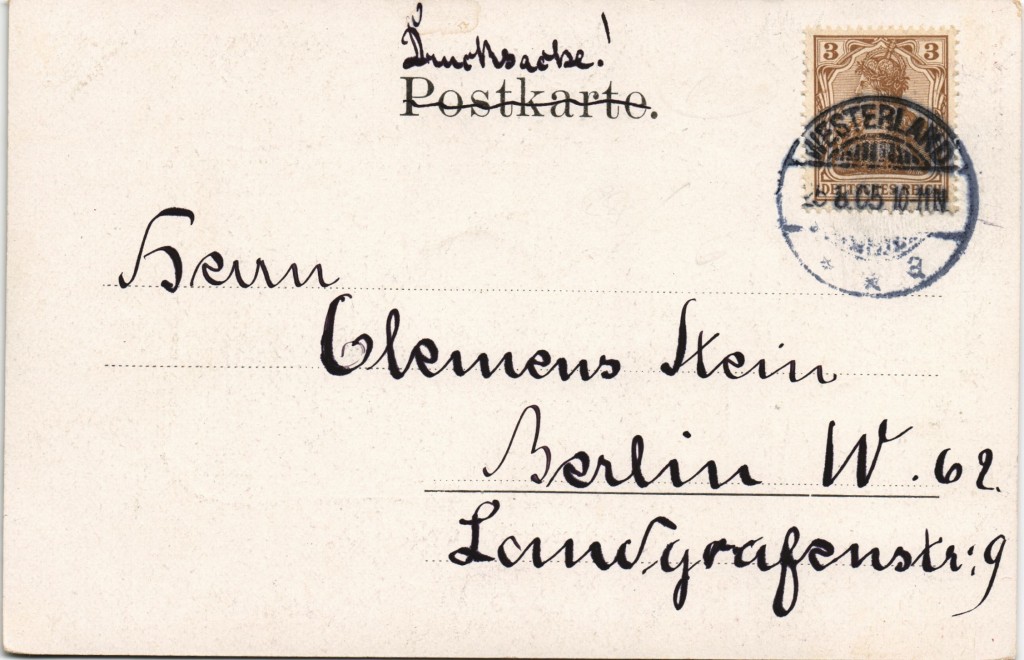 Drucksache!
Postkarte.
3 3
WESTERLAND
8.05 10-11N
DEUTSCHES REICH
* * a
Herrn
Clemens Stein
Berlin W. 62.
Landgrafenstr: 9